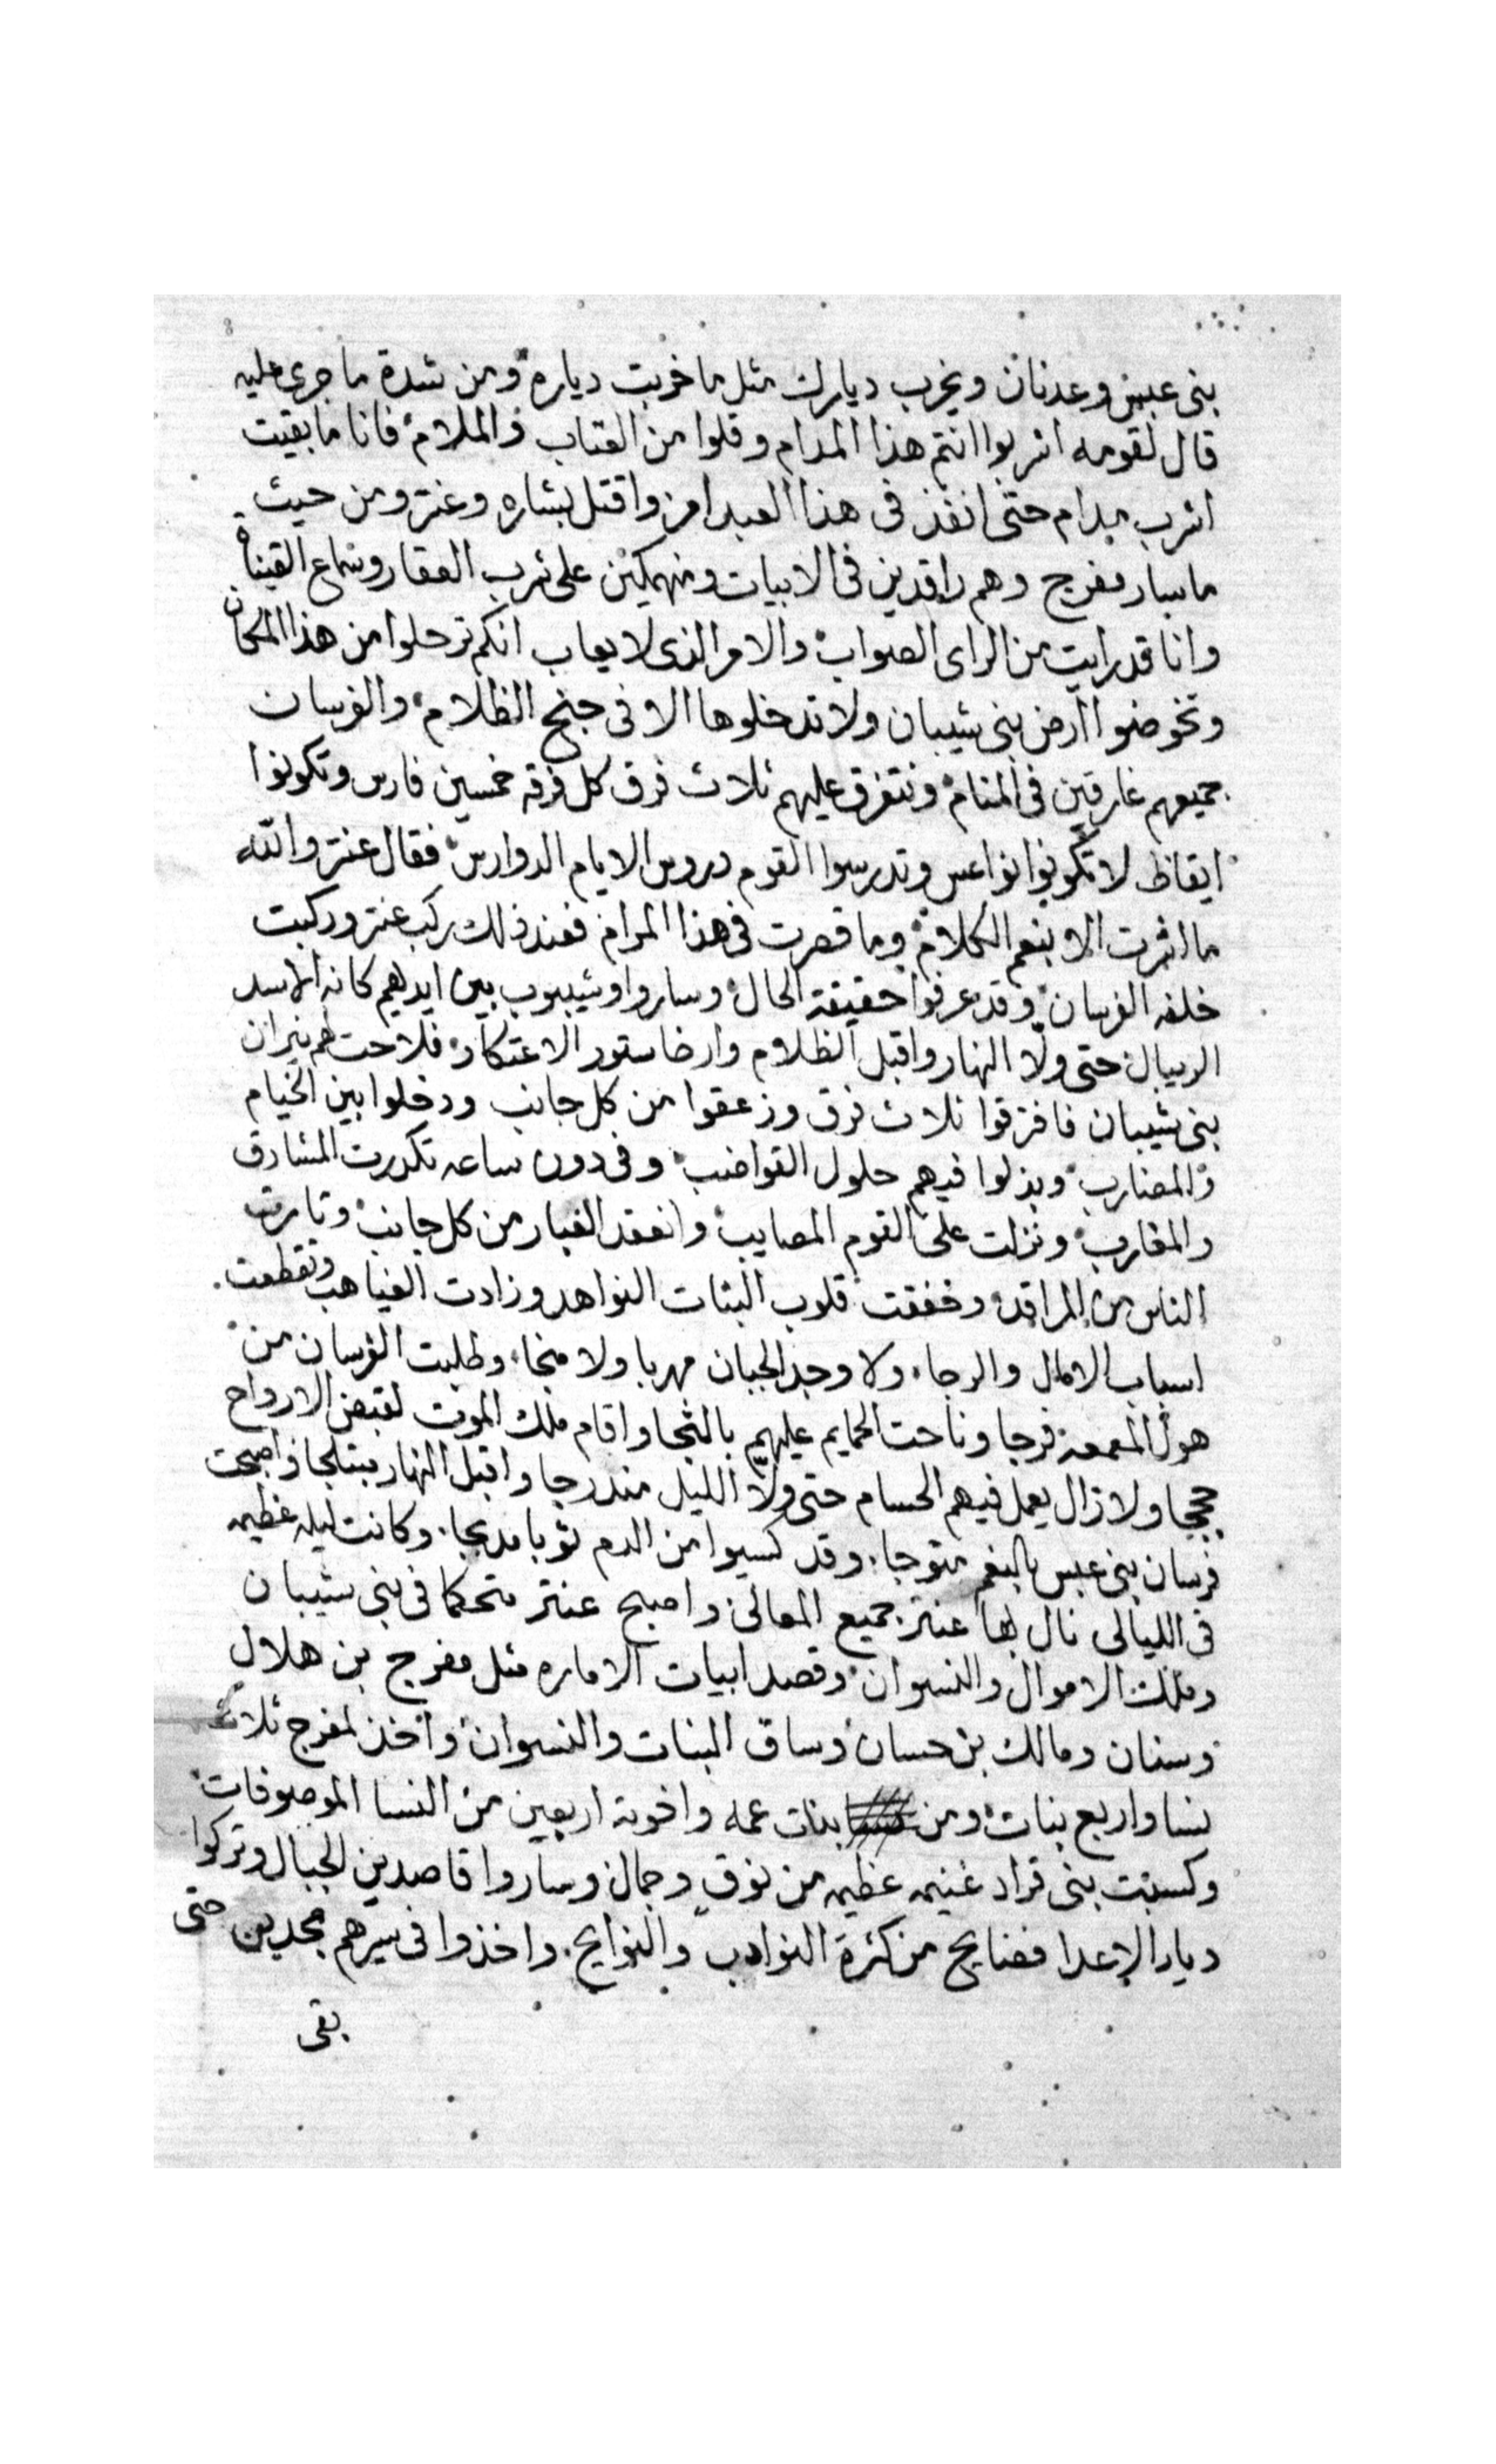 بنى عبس وعدنان ويخرب ديارك مثل ما خربت دياره ومن شدة ما جرى عليه
قال لقومه اشربوا انتم هذا المدام وقلوا من العتاب والملام فانا ما بقيت
اشرب مدام حتى انفذ فى هذا العبد امر واقتل بشاره وعنتر ومن حيث
ما سار مفرج وهم راقدين فى الابيات ومنهمكين على شرب العقار وسماع القينات
وانا قد رايت من الراى الصواب والامر الذى لا يعاب انكم ترحلوا من هذا المكان
وتخوضوا ارض بنى شيبان ولا تدخلوها الا فى جنح الظلام والفرسان
جميعهم غارقين فى المنام ونتفرق عليهم ثلاث فرق كل فرقه خمسين فارس وتكونوا
ايقاظ لا تكونوا نواعس وتدرسوا القوم دروس الايام الدوارس فقال عنتر والله
ما اشرت الا بنعم الكلام وما قصرت فى هذا المرام فعند ذلك ركب عنتر وركبت
خلفه الفرسان وقد عرفوا حقيقة الحال وساروا وشيبوب بين ايديهم كانه الاسد
الريبال حتى ولا النهار واقبل الظلام وارخا ستور الاعتكار فلاحت لهم نيران
بنى شيبان فافترقوا ثلاث فرق وزعقوا من كل جانب ودخلوا بين الخيام
والمضارب وبذلوا فيهم حلول القواضب وفى دون ساعه تكدرت المشارق
والمغارب ونزلت على القوم المصايب وانعقد الغبار من كل جانب وثارت
الناس من المراقد وخفقت قلوب البنات النواهد وزادت الغياهب وتقطعت
اسباب الامال والرجا ولا وجد الجبان مهربا ولا منجا وطلبت الفرسان من
هول المعمعة فرجا وناحت الحمايم عليهم بالشجا واقام ملك الموت لقبض الارواح
حججا ولا زال يعمل فيهم الحسام حتى ولا الليل مندرجا واقبل النهار مبتلجا واصبحت
فرسان بنى عبس بالنعم متوجا وقد كسيوا من الدم ثوبا مدبجا وكانت ليله عظيمه
فى الليالى نال بها عنتر جميع المعالى واصبح عنتر متحكما فى بنى شيبان
وملك الاموال والنسوان وقصد ابيات الاماره مثل مفرج بن هلال
وسنان ومالك بن حسان وساق البنات والنسوان واخذ لمفرج ثلاث
نسا واربع بنات ومن بنات عمه واخوته اربعين من النسا الموصوفات
وكسبت بنى قراد غنيمه عظيمه من نوق وجمال وساروا قاصدين الجبال وتركوا
ديار الاعدا فضايح من كثرة النوادب والنوايح واخذوا فى سيرهم مجدين حتى
بقى